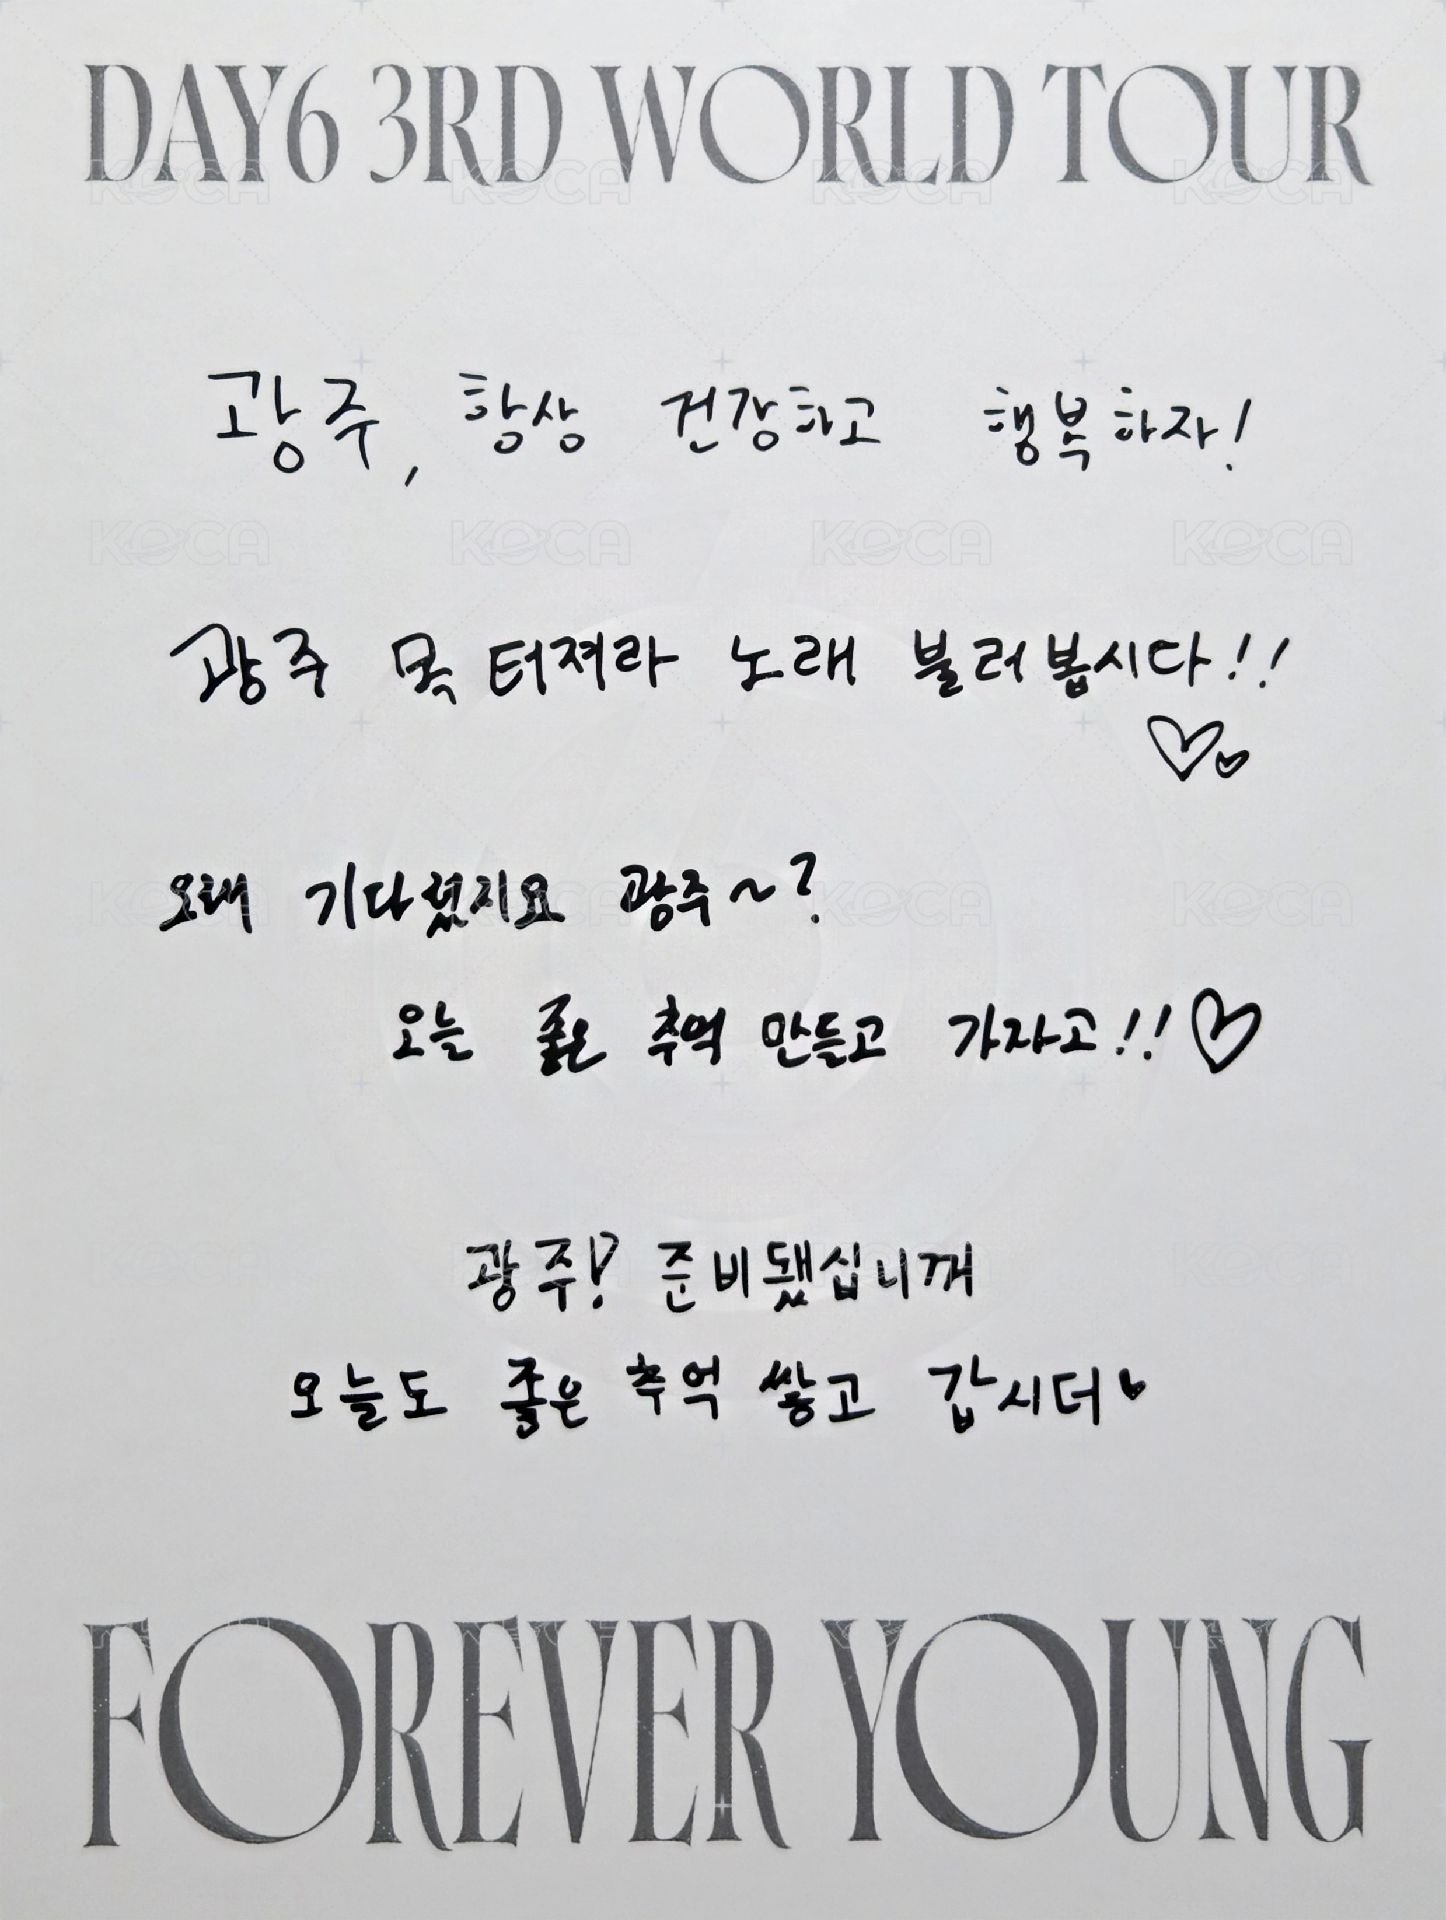 DAY6 3RD WORLD TOUR
광주, 항상 건강하고 행복하자!
광주 목 터져라 노래 불러봅시다!!
오래 기다렸지요 광주~?
오늘 좋은 추억 만들고 가자고!!
광주! 준비됐십니꺼
오늘도 좋은 추억 쌓고 갑시더
FOREVER YOUNG
KOCA KOCA KOCA KOCA